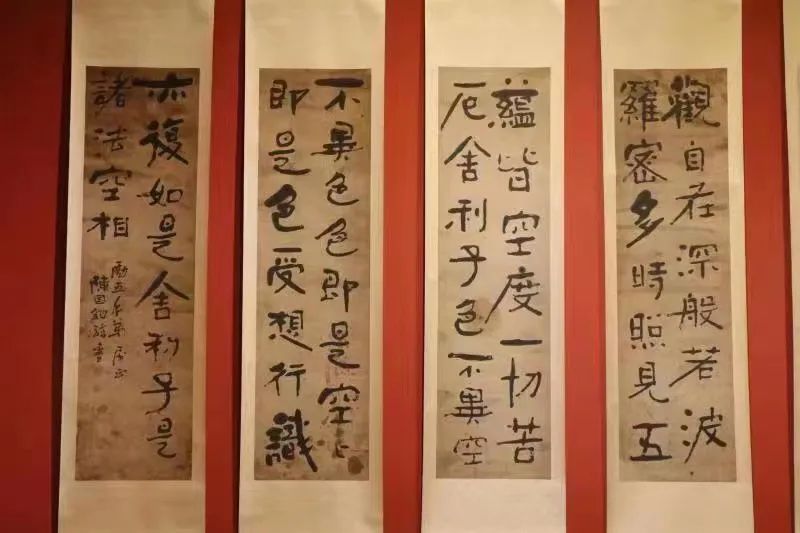 觀自在深般若波
羅密多時照見五
蘊皆空度一切苦
厄舍利子色不異空
不異色色即是空〻
即是色受想行識
亦復如是舍利子是
諸法空相